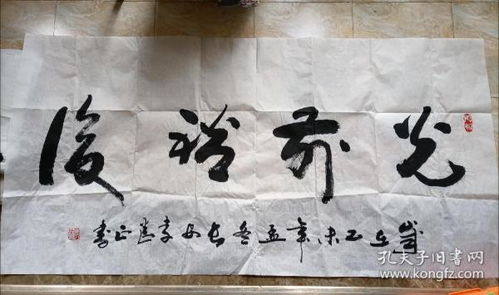 光前裕後
歲在乙未年孟冬長安李正書
孔夫子旧书网
www.kongfz.com